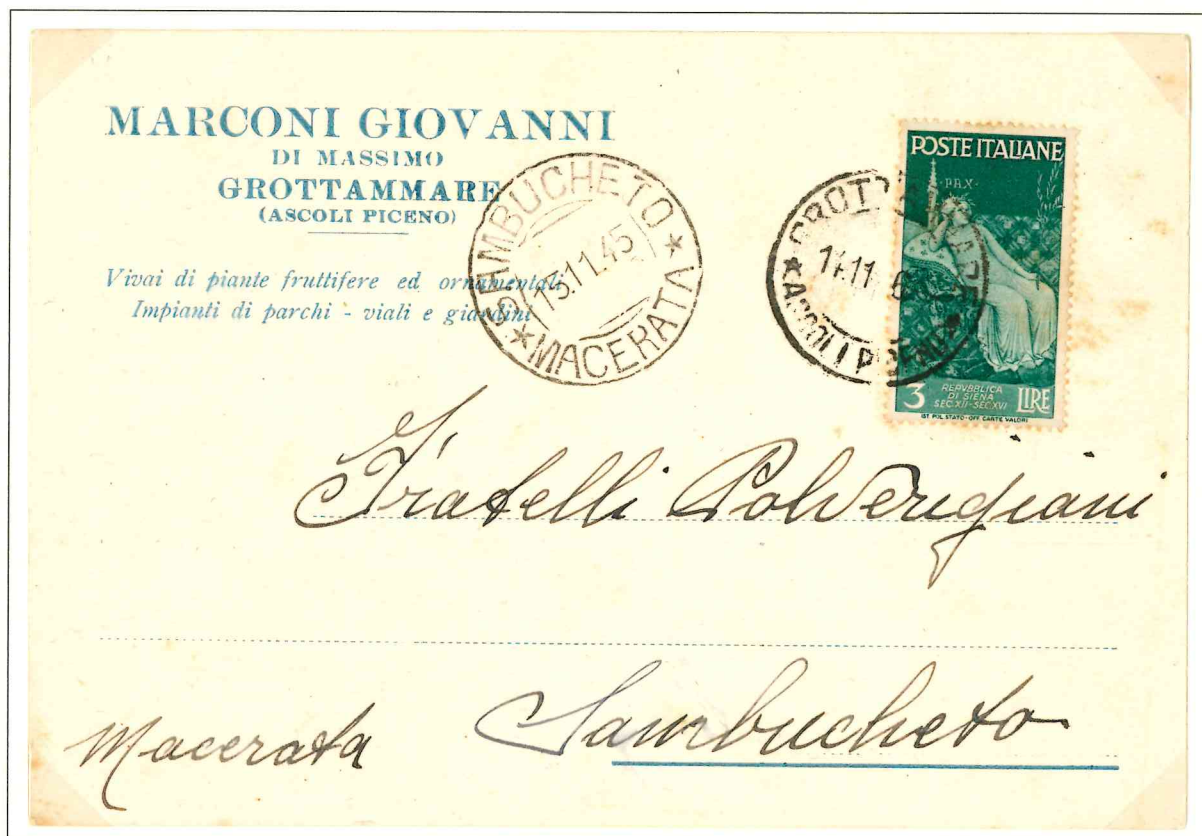 MARCONI GIOVANNI
DI MASSIMO
GROTTAMMARE
(ASCOLI PICENO)
Vivai di piante fruttifere ed ornamentali
Impianti di parchi - viali e giardini
SAMBUCHETO
15.11.45
★ MACERATA ★
14.11
POSTE ITALIANE
PAX
3 REPVBBLICA DI SIENA SEC·XII-SEC·XVI LIRE
IST. POL. STATO-OFF. CARTE VALORI
Fratelli Polverigiani
Macerata Sambucheto